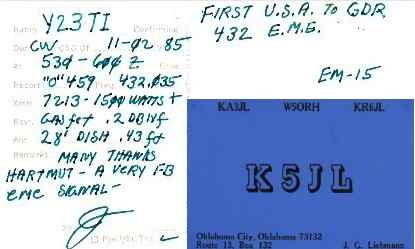 Y23TI
Confirming
CW QSO of 11-02 85
530 - 600 Z
Report "O" 459 Freq. 432.035
7213 - 1500 WATTS +
GASFET .2DB NF
28' DISH .43 fd
Remarks MANY THANKS
HARTMUT - A VERY FB
EME SIGNAL -
FIRST U.S.A. TO GDR
432 E.M.E.
EM-15
KA3JL W5ORH KR5JL
K5JL
Oklahoma City, Oklahoma 73132
Route 13, Box 132 J. G. Liebmann